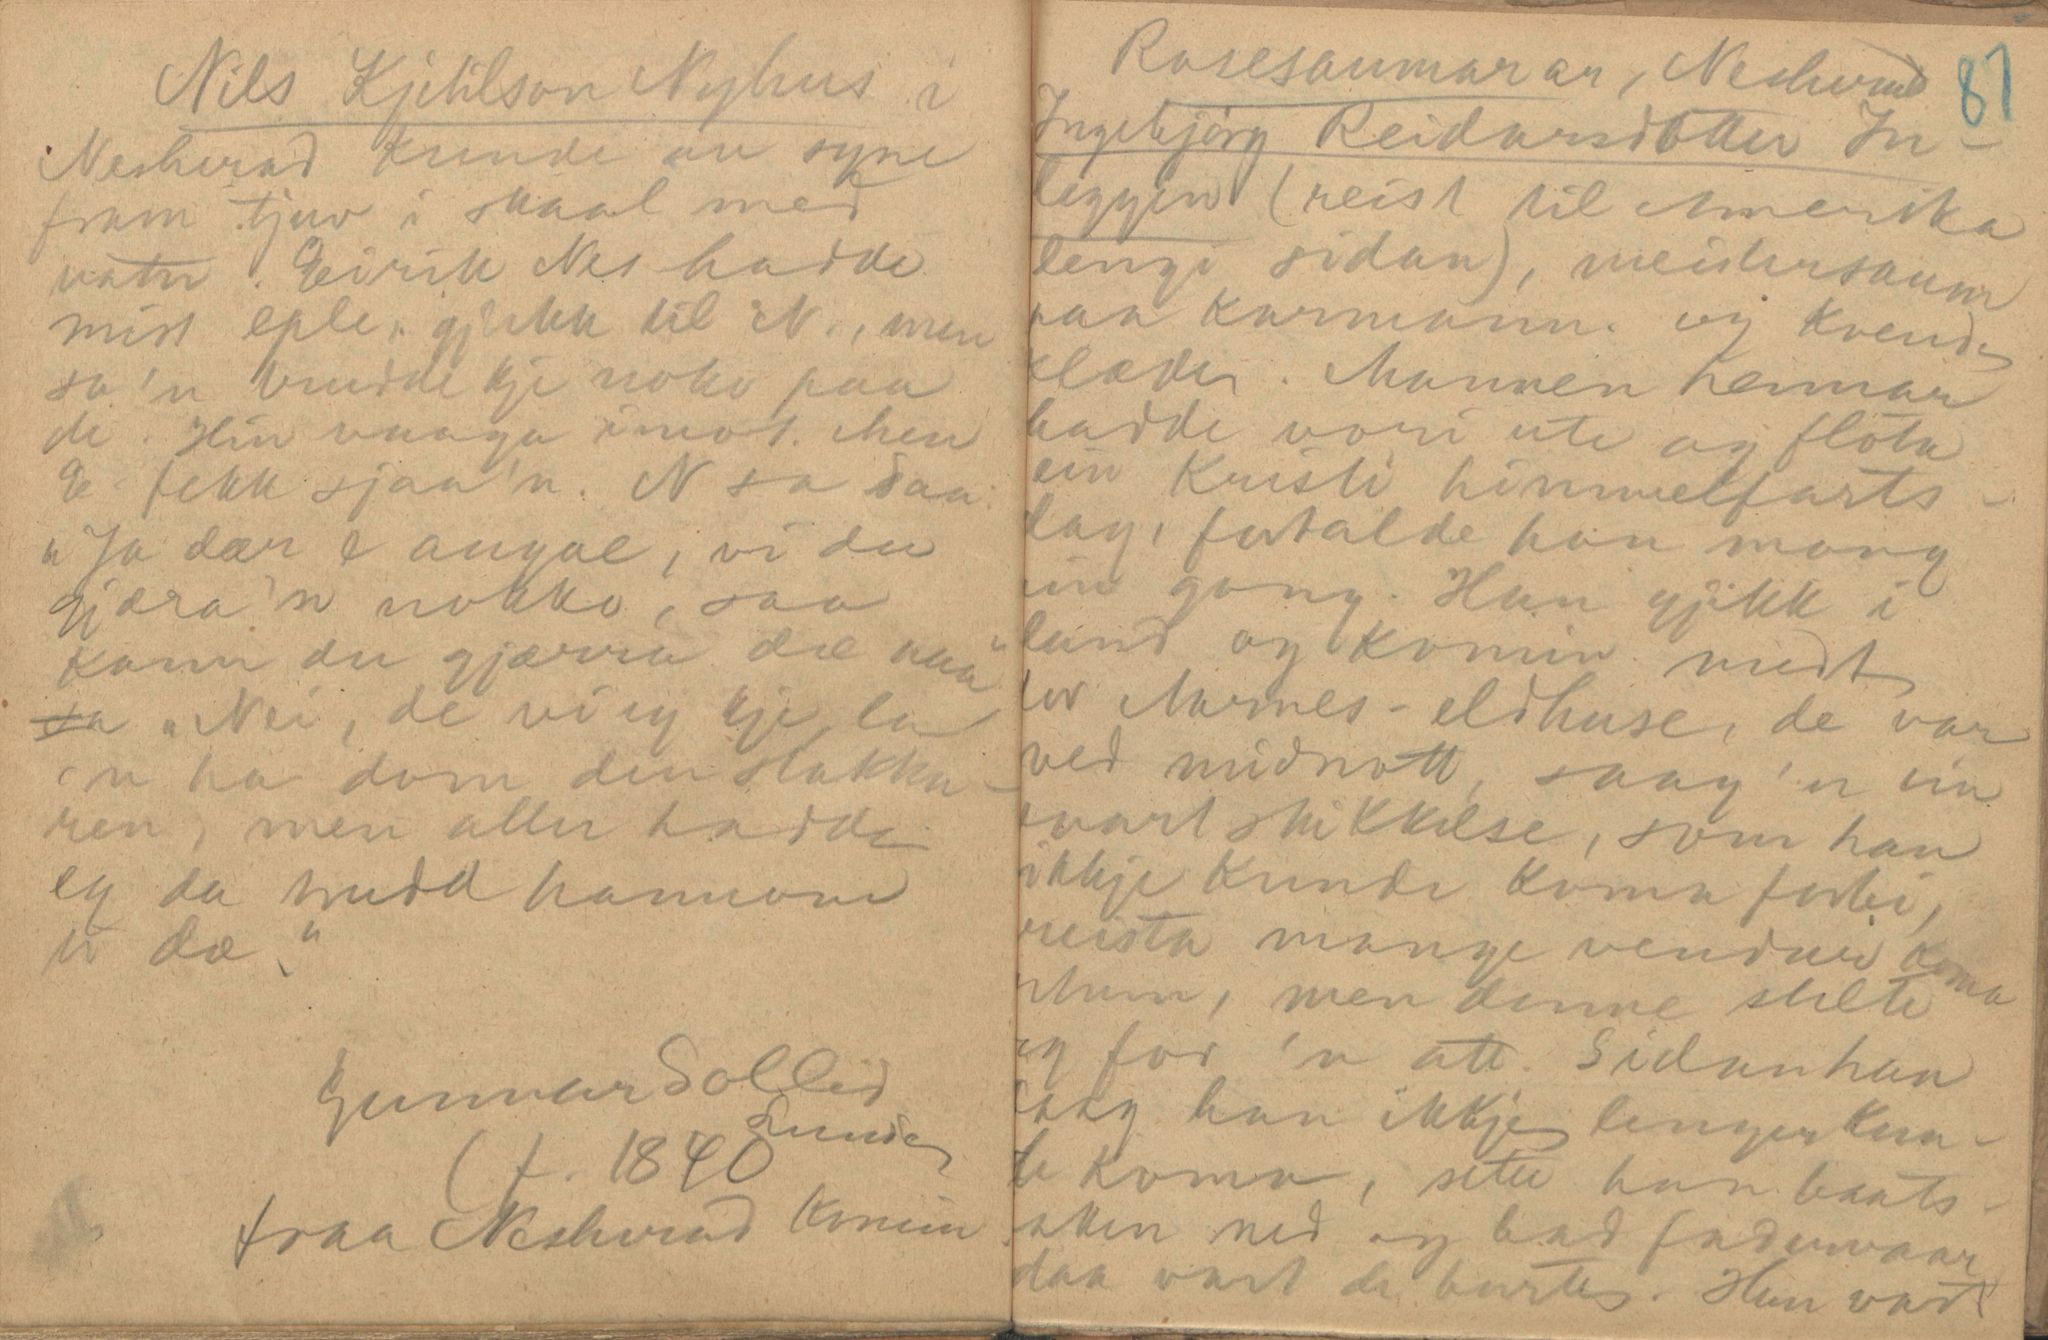 Nils Kjetilson Nyhus i
Nesherad kunde au syne
fram tjuv i skaal med
vatn. Eirik Nes hadde
mist eple, gjekk til N., men
sa'n trudde kje noko paa
de. Hin vaaga imot. Men
E. fekk sjaa'n. N sa daa:
"Ja dær e augae, vi du
gjæra'n nokko, saa
kann du gjærra dæ naa"
sa "Nei, de vi eg kje, la
'n ha dom den stakka-
ren, men aller hadde
eg da trudd hannom
ti dæ."
Gunnar Sollid
Lunde
(f. 1840
fraa Nesherad komin
Rosesaumarar, Nesherad
87
Ingebjørg Reidarsdotter In-
leggjen (reist til Amerika
lengi sidan), meistersaum
paa karmann. og kvende
klæde. Mannen hennar
hadde vori ute og fløta
ein Kristi himmelfarts-
dag, fortalde han mang
ein gong. Han gjikk i
land og komin midt
for Aarnes-eldhuse, de var
ved midnott, saag'n ein
svart skikkelse, som han
ikkje kunde koma forbi,
freista mange vendur koma
utum, men denne stelte
seg for 'n att. Sidan han
saag han ikkje lenger kun-
de koma, sette han baats-
aken ned og bad fadervaar
daa vart de burte. Han vart